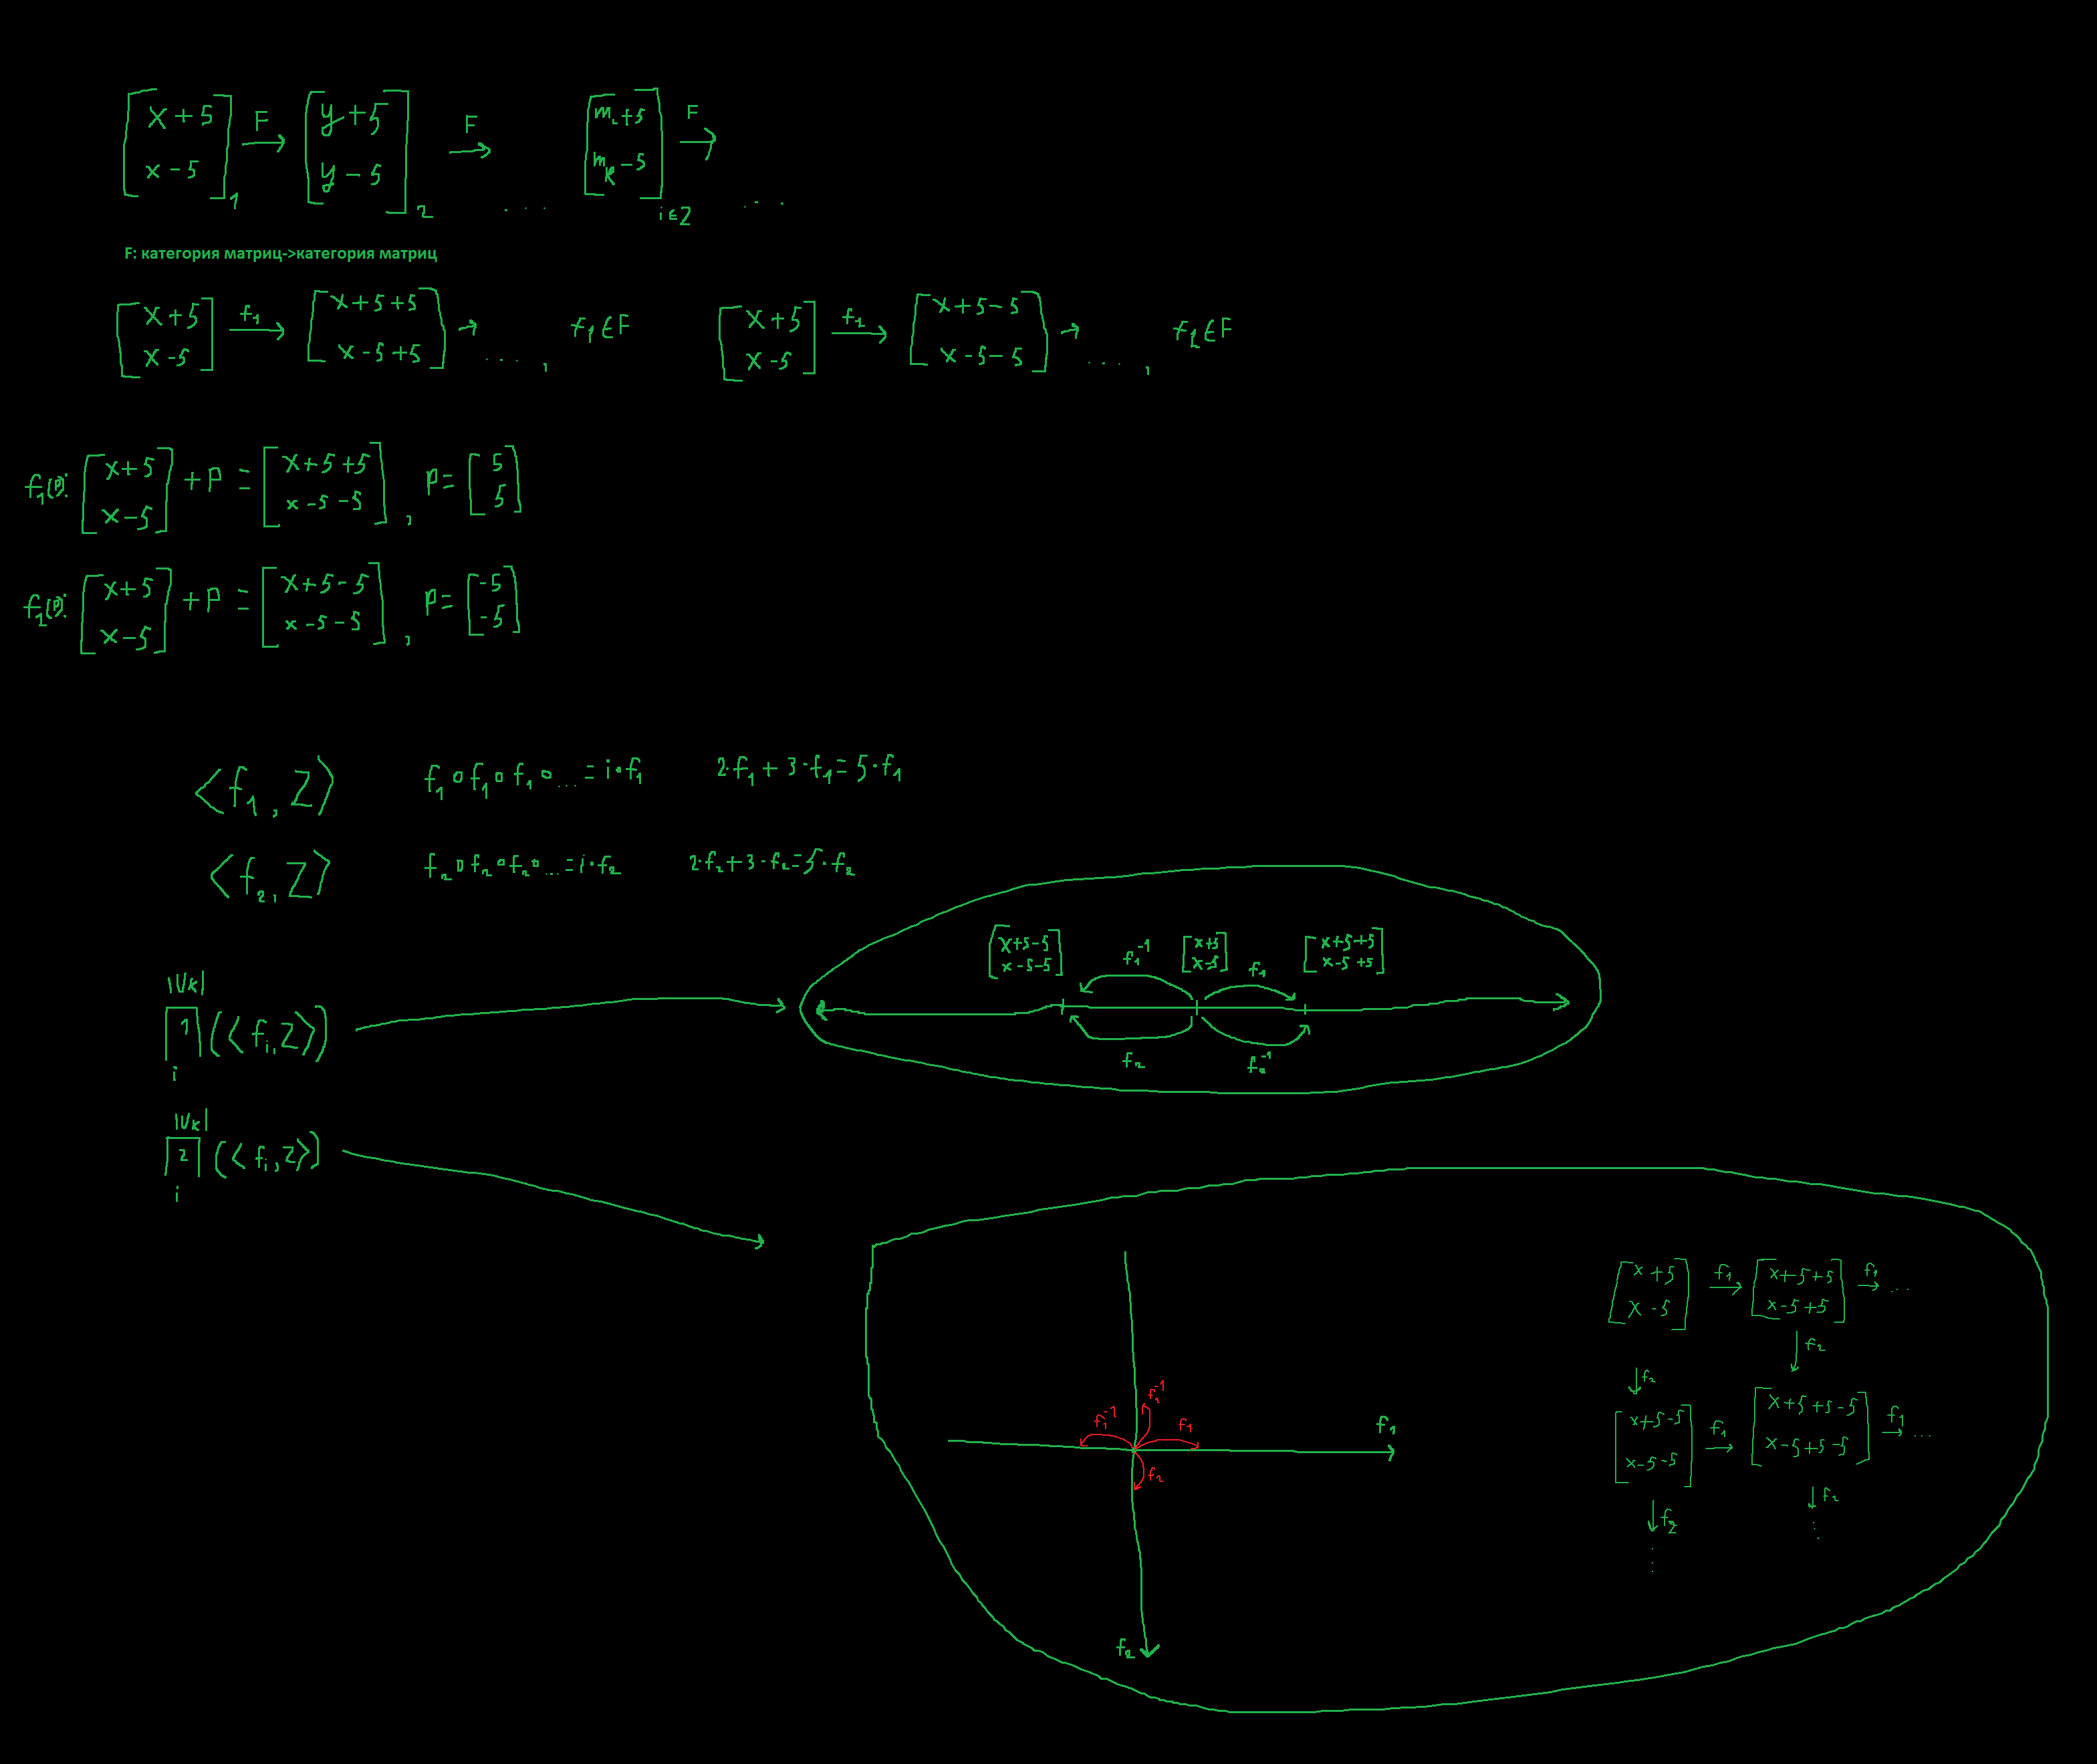 [x+5 x-5]₁ F→ [y+5 y-5]₂ F→ ... [m_i+5 m_k-5]_{i∈Z} F→ ...
F: категория матриц->категория матриц
[x+5 x-5] f₁→ [x+5+5 x-5+5] → ..., f₁∈F [x+5 x-5] f₂→ [x+5-5 x-5-5] → ..., f₂∈F
f₁(p): [x+5 x-5] + p = [x+5+5 x-5-5], p= [5 5]
f₂(p): [x+5 x-5] + p = [x+5-5 x-5-5], p= [-5 -5]
<f₁, Z> f₁∘f₁∘f₁∘...=i·f₁ 2·f₁+3·f₁=5·f₁
<f₂, Z> f₂∘f₂∘f₂∘...=i·f₂ 2·f₂+3·f₂=5·f₂
|V_k|
1 (<f_i, Z>)
i
[x+5-5 x-5-5] f₁⁻¹ [x+5 x-5] f₁ [x+5+5 x-5+5]
f₂ f₂⁻¹
|V_k|
2 (<f_i, Z>)
i
f₁⁻¹
f₁⁻¹ f₁ f₁
f₂
f₂
[x+5 x-5] f₁→ [x+5+5 x-5+5] f₁→ ...
↓f₂ ↓f₂
[x+5-5 x-5-5] f₁→ [x+5+5-5 x-5+5-5] f₁→ ...
↓f₂ ↓f₂